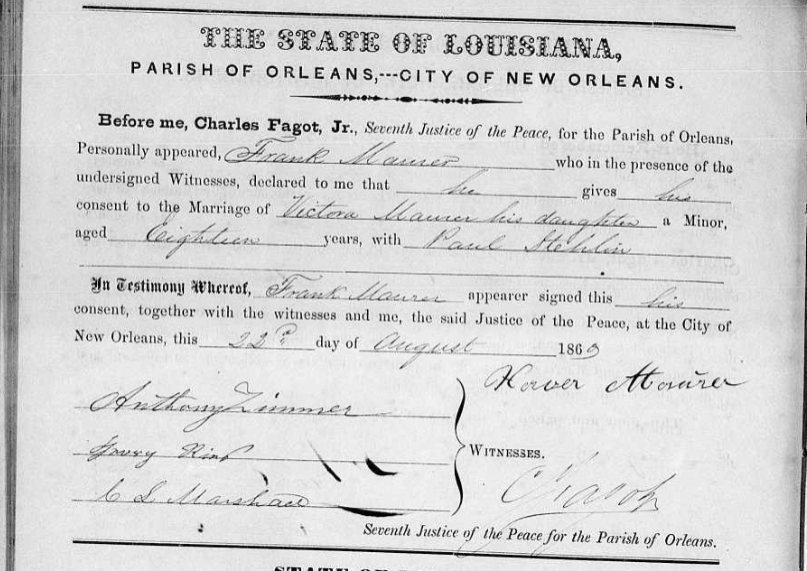 THE STATE OF LOUISIANA,
PARISH OF ORLEANS,---CITY OF NEW ORLEANS.
Before me, Charles Fagot, Jr., Seventh Justice of the Peace, for the Parish of Orleans,
Personally appeared, Frank Maurer who in the presence of the
undersigned Witnesses, declared to me that he gives his
consent to the Marriage of Victora Maurer his daughter a Minor,
aged Eighteen years, with Paul Stehlin
In Testimony Whereof, Frank Maurer appearer signed this his
consent, together with the witnesses and me, the said Justice of the Peace, at the City of
New Orleans, this 22d day of August 1863
Maurer
Anthony Zimmer
WITNESSES.
C Fagot
C L Marshall
Seventh Justice of the Peace for the Parish of Orleans.
STATE OF